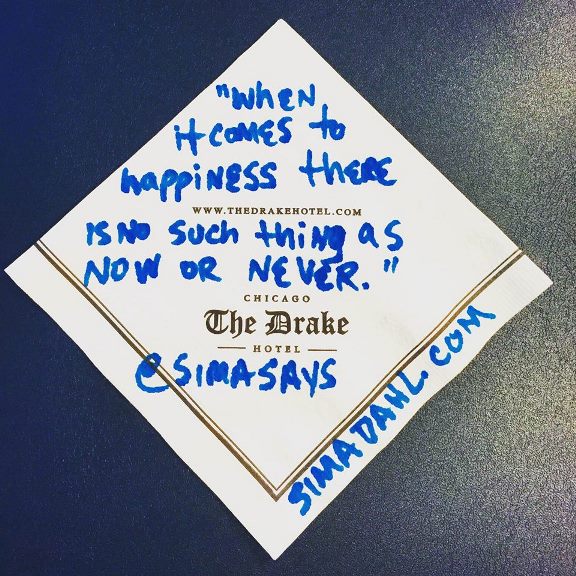 "WHEN
it COMES to
happiNESS thERE
WWW.THEDRAKEHOTEL.COM
IS NO Such thing AS
NOW OR NEVER."
CHICAGO
The Drake
HOTEL
@SIMASAYS
SIMADAHL.COM